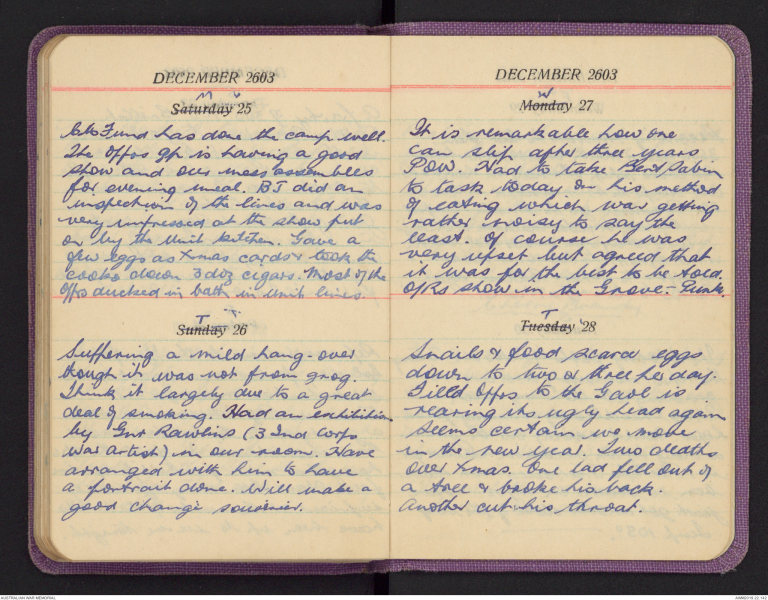 DECEMBER 2603
M
Saturday 25
Fund has done the camp well.
The Offrs gp is having a good
show and our mess assembles
for evening meal. BJ did an
inspection of the lines and was
very impressed at the show put
on by the Unit kitchen. Gave a
few eggs as Xmas cards & took the
cooks down 3 doz cigars. Most of the
Offrs ducked in both in Unit lines.
T
Sunday 26
Suffering a mild hang-over
though it was not from grog.
Think it largely due to a great
deal of smoking. Had an exhibition
by Gnr Rawlins (3 Ind Corps
War artist) in our room. Have
arranged with him to have
a portrait done. Will make a
good change souvenier.
DECEMBER 2603
W
Monday 27
It is remarkable how one
can slip after three years
POW. Had to take Bert Sabin
to task today on his method
of eating which was getting
rather noisy to say the
least. Of course he was
very upset but agreed that
it was for the best to be told.
O/Rs show in the Grove:- Punk.
T
Tuesday 28
Snails & food scarce eggs
down to two or three per day.
Field Offrs to the Gaol is
rearing its ugly head again
seems certain we move
in the new year. Two deaths
over Xmas. One lad fell out of
a tree & broke his back.
Another cut his throat.
AUSTRALIAN WAR MEMORIAL